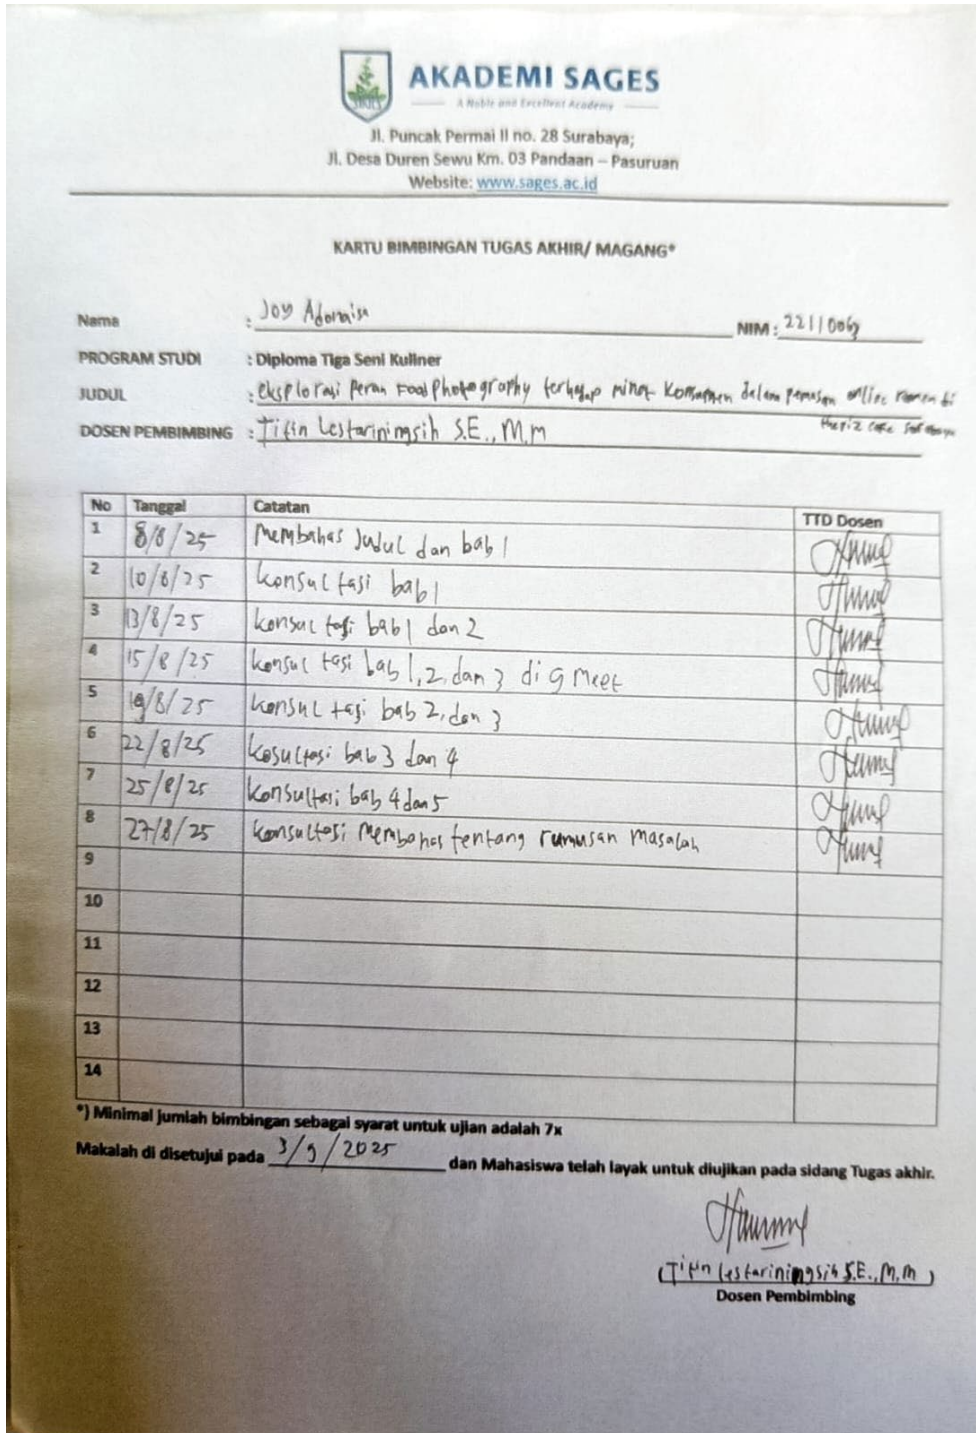 AKADEMI SAGES
A Noble and Excellent Academy
Jl. Puncak Permai II no. 28 Surabaya;
Jl. Desa Duren Sewu Km. 03 Pandaan – Pasuruan
Website: www.sages.ac.id
KARTU BIMBINGAN TUGAS AKHIR/ MAGANG*
Nama : Joy Adonaisa NIM : 2211006
PROGRAM STUDI : Diploma Tiga Seni Kuliner
JUDUL : eksplorasi Peran Food Photography terhadap minat Konsumen dalam pemesan online ramen di
cafe Surabaya
DOSEN PEMBIMBING : Titin Lestariningsih S.E., M.M
No Tanggal Catatan TTD Dosen
1 8/8/25 Membahas Judul dan bab 1
2 10/8/25 konsultasi bab 1
3 13/8/25 konsultasi bab 1 dan 2
4 15/8/25 konsultasi bab 1, 2, dan 3 di G Meet
5 19/8/25 konsultasi bab 2, dan 3
6 22/8/25 kosultasi bab 3 dan 4
7 25/8/25 konsultasi bab 4 dan 5
8 27/8/25 konsultasi Membahas tentang rumusan masalah
9
10
11
12
13
14
*) Minimal jumlah bimbingan sebagai syarat untuk ujian adalah 7x
Makalah di disetujui pada 3/9/2025 dan Mahasiswa telah layak untuk diujikan pada sidang Tugas akhir.
(Titin Lestariningsih S.E., M.M)
Dosen Pembimbing